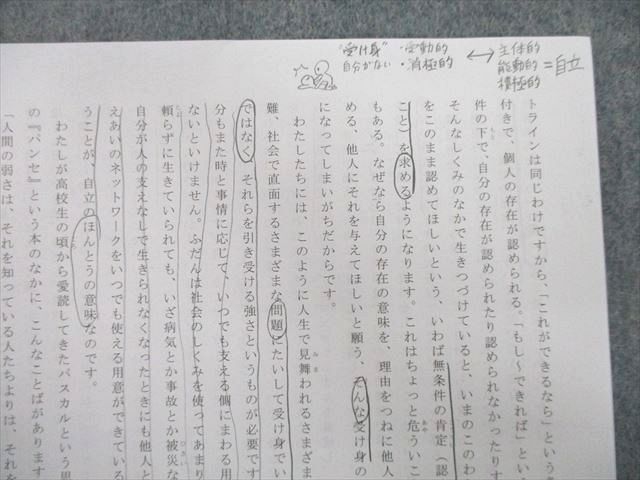 "受け身"
自分がない
・受動的
・消極的
↔
主体的
能動的
積極的
=自立
トラインは同じわけですから、「これができるなら」という
付きで、個人の存在が認められる。「もし〜できれば」とい
件の下で、自分の存在が認められたり認められなかったりす
そんなしくみのなかで生きつづけていると、いまのこのわ
をこのまま認めてほしいという、いわば無条件の肯定(認
こと)を求めるようになります。これはちょっと危ういこ
もある。なぜなら自分の存在の意味を、理由をつねに他人
める、他人にそれを与えてほしいと願う、そんな受け身の
になってしまいがちだからです。
わたしたちには、このように人生で見舞われるさまざま
難、社会で直面するさまざまな問題にたいして受け身でい
ではなく、それらを引き受ける強さというものが必要です
分もまた時と事情に応じて、いつでも支える側にまわる用
ないといけません。ふだんは社会のしくみを使ってあまり
頼らずに生きていられても、いざ病気とか事故とか被災な
自分が人の支えなしで生きられなくなったときにも他人と
えあいのネットワークをいつでも使える用意ができている
うことが、自立のほんとうの意味なのです。
わたしが高校生の頃から愛読してきたパスカルという思
の『パンセ』という本のなかに、こんなことばがあります
「人間の弱さは、それを知っている人たちよりは、それを